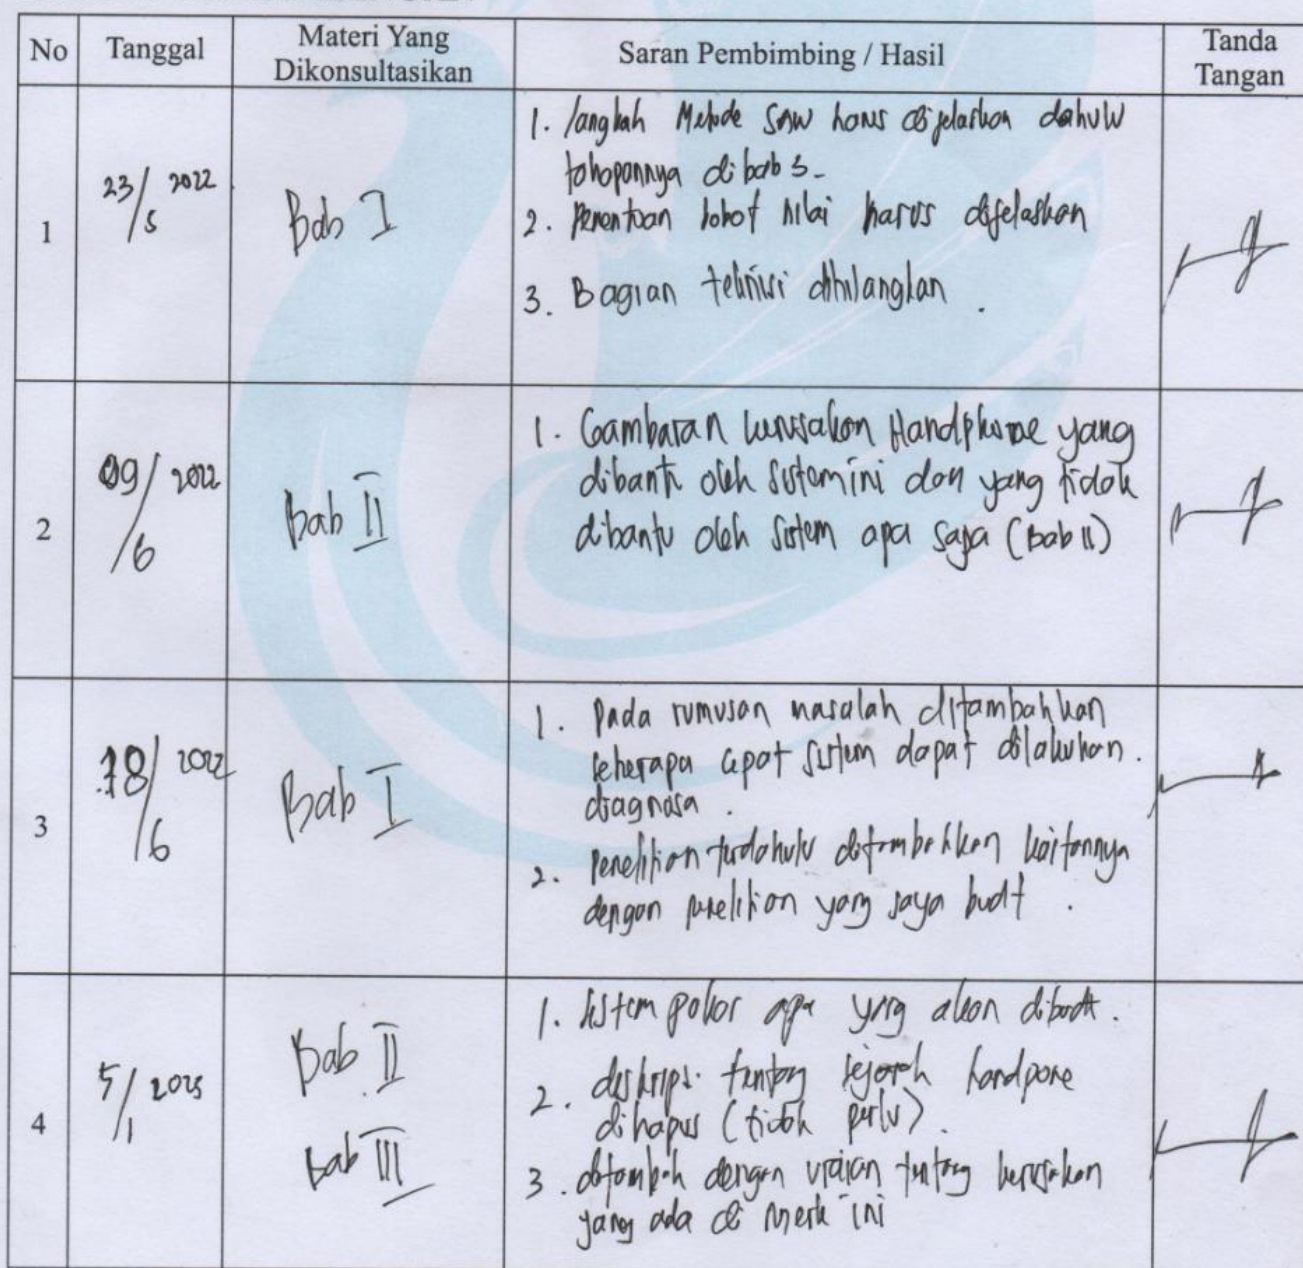 No Tanggal Materi Yang Dikonsultasikan Saran Pembimbing / Hasil Tanda Tangan
1 23/5 2022 Bab I
1. langkah Metode SAW harus dijelaskan dahulu
tahapannya di bab 3.
2. Penentuan bobot nilai harus dijelaskan
3. Bagian dihilangkan.
2 09/6 2022 Bab II
1. Gambaran kerusakan Handphone yang
dibantu oleh sistem ini dan yang tidak
dibantu oleh sistem apa saja (Bab II)
3 18/6 2022 Bab I
1. Pada rumusan masalah ditambahkan
seberapa cepat sistem dapat dilakukan.
diagnosa.
2. Penelitian terdahulu ditambahkan kaitannya
dengan penelitian yang saya buat.
4 5/1 Bab II
Bab III
1. sistem pakar apa yang akan dibuat.
2. deskripsi tentang sejarah handpone
dihapus (tidak perlu).
3. ditambah dengan uraian tentang kerusakan
yang ada di merk ini